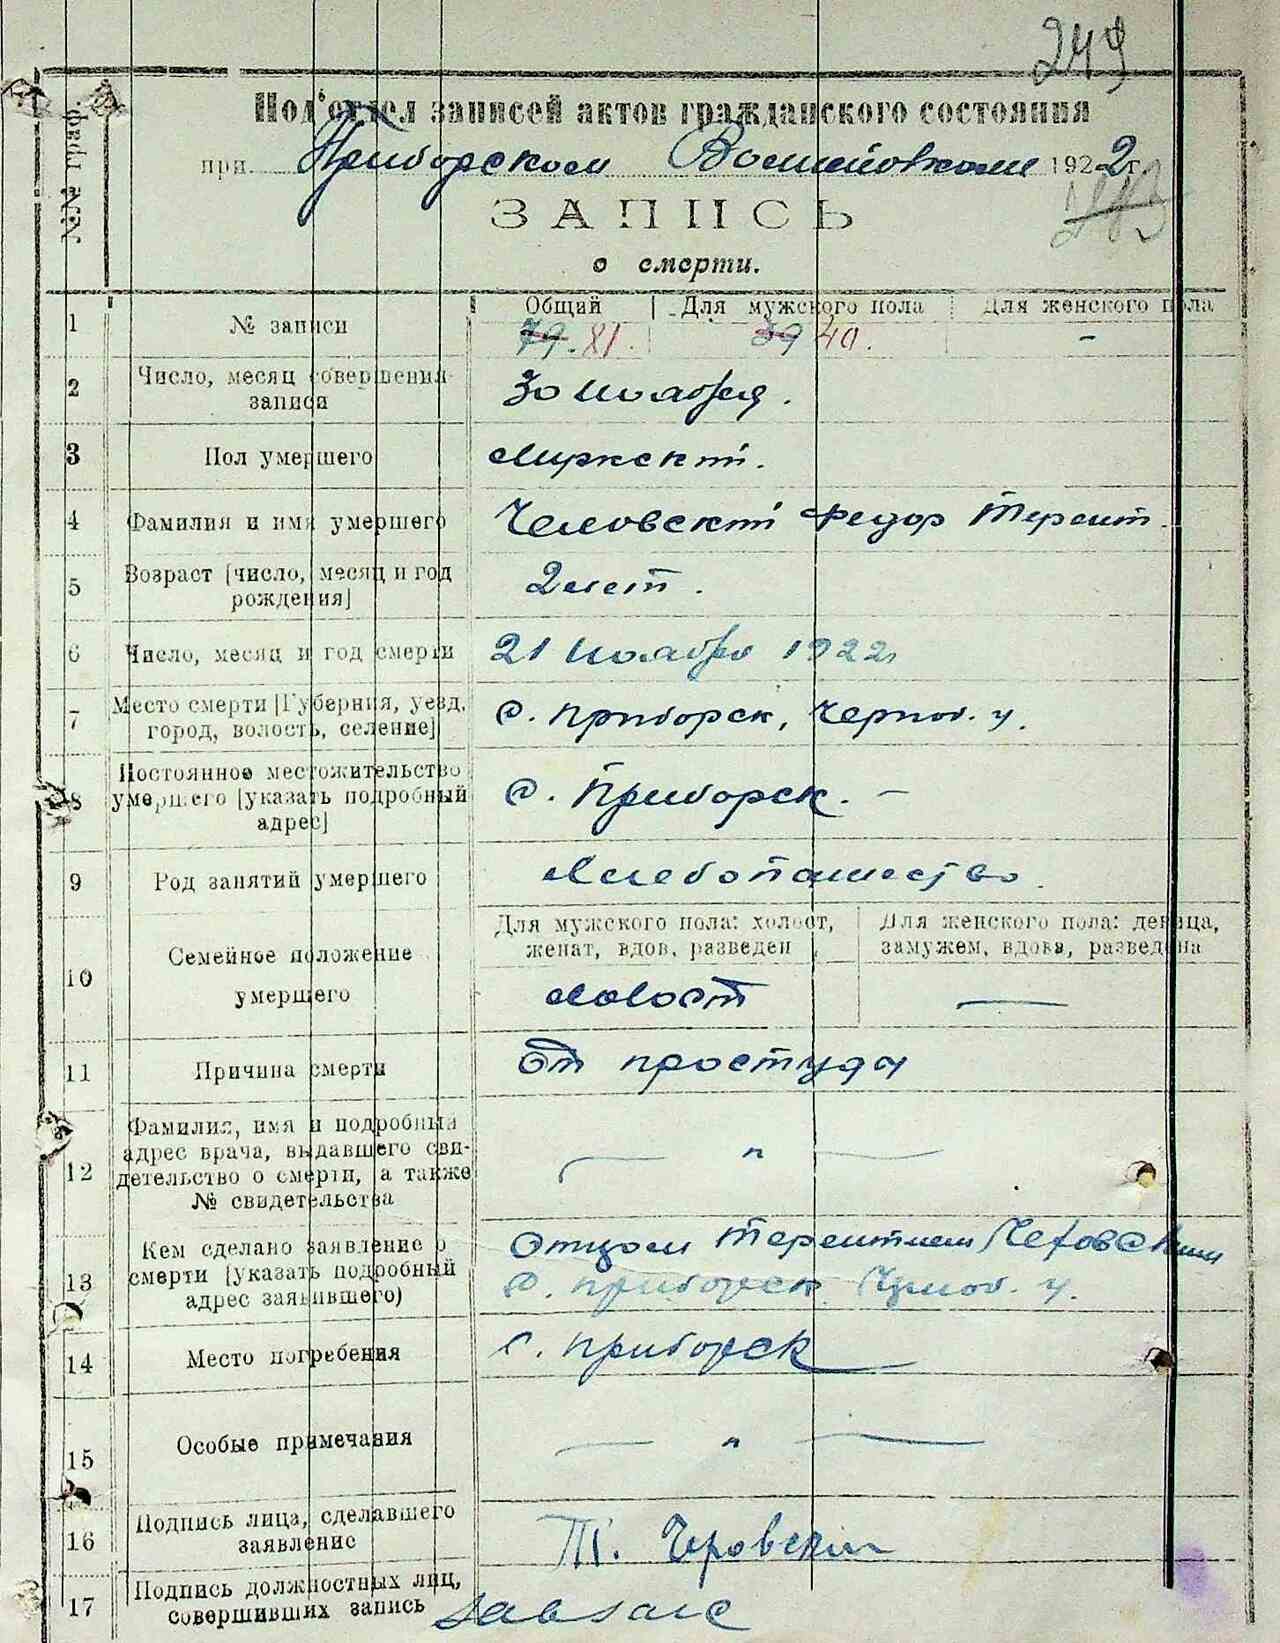 249
№№ граф.
Под'отдел записей актов гражданского состояния
при Приборском Волисполкоме 1922 г.
ЗАПИСЬ
о смерти.
Общий Для мужского пола Для женского пола
1 № записи 79. 81. 39 40. -
2 Число, месяц совершения записи 30 ноября.
3 Пол умершего Мужской.
4 Фамилия и имя умершего Федор Терент.
5 Возраст [число, месяц и год рождения] 2 лет.
6 Число, месяц и год смерти 21 ноября 1922 г.
7 Место смерти [Губерния, уезд, город, волость, селение] с. Приборск, Черноб. у.
8 Постоянное местожительство умершего [указать подробный адрес] с. Приборск. -
9 Род занятий умершего Хлебопашество.
Для мужского пола: холост, женат, вдов, разведен
Для женского пола: девица, замужем, вдова, разведена
10 Семейное положение умершего Холост —
11 Причина смерти От простуды
12 Фамилия, имя и подробный адрес врача, выдавшего свидетельство о смерти, а также № свидетельства — „ —
13 Кем сделано заявление о смерти [указать подробный адрес заявившего) Отцом Терентием
с. Приборск Черноб. у.
14 Место погребения с. Приборск
15 Особые примечания — „ —
16 Подпись лица, сделавшего заявление Т.
17 Подпись должностных лиц, совершивших запись Завзагс